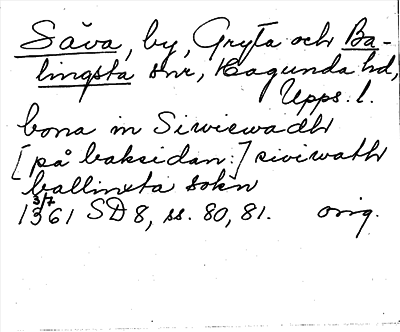 Säva, by, Gryta och Ba-
lingsta snr, Hagunda hd,
Upps. l.
bona in Siwiswadh
[på baksidan:] siviwath
ballinxta sokn
3/7
1361 SD 8, ss. 80, 81. orig.